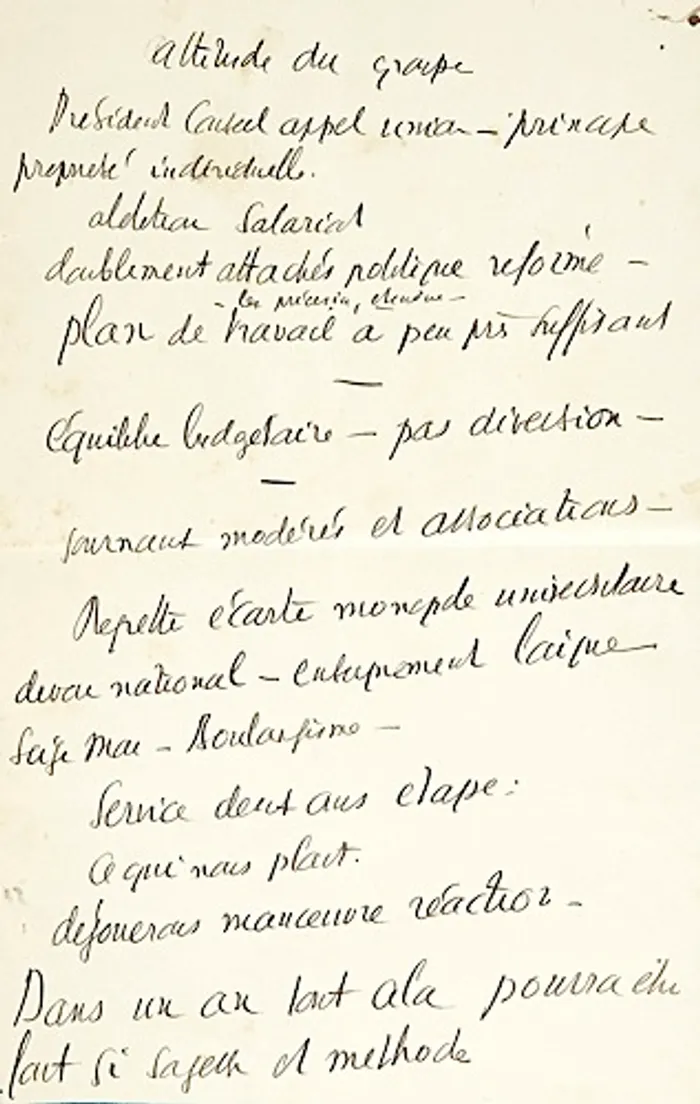 attitude du groupe
Président Conseil appel union – principe
propriété individuelle.
abolition salariat
doublement attachés politique réforme –
plan de travail à peu près suffisant
Équilibre budgétaire – pas diversion –
journaux modérés et associations –
Répète écarte monopole universitaire
devoir national – enseignement laïque
Seize Mai – Boulangisme –
Service deux ans étape :
Ce qui nous plaît.
déjouerons manœuvre réaction –
Dans un an tout cela pourra être
fait si sagesse et méthode